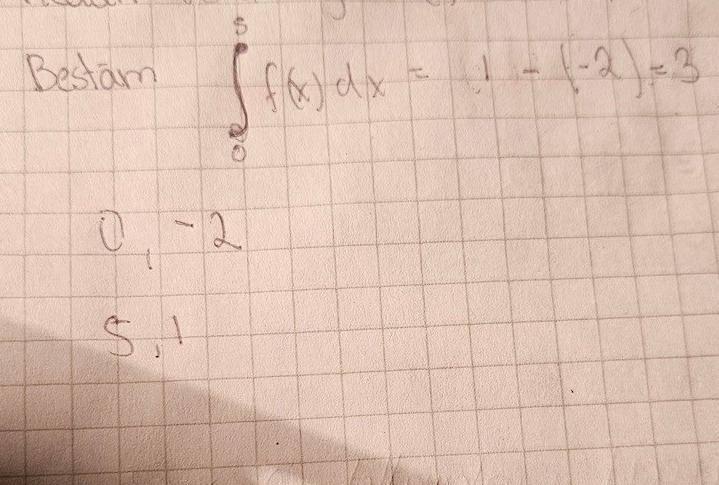 5
Bestäm ∫ f(x) dx = 1 - (-2) = 3
0
0, -2
5, 1